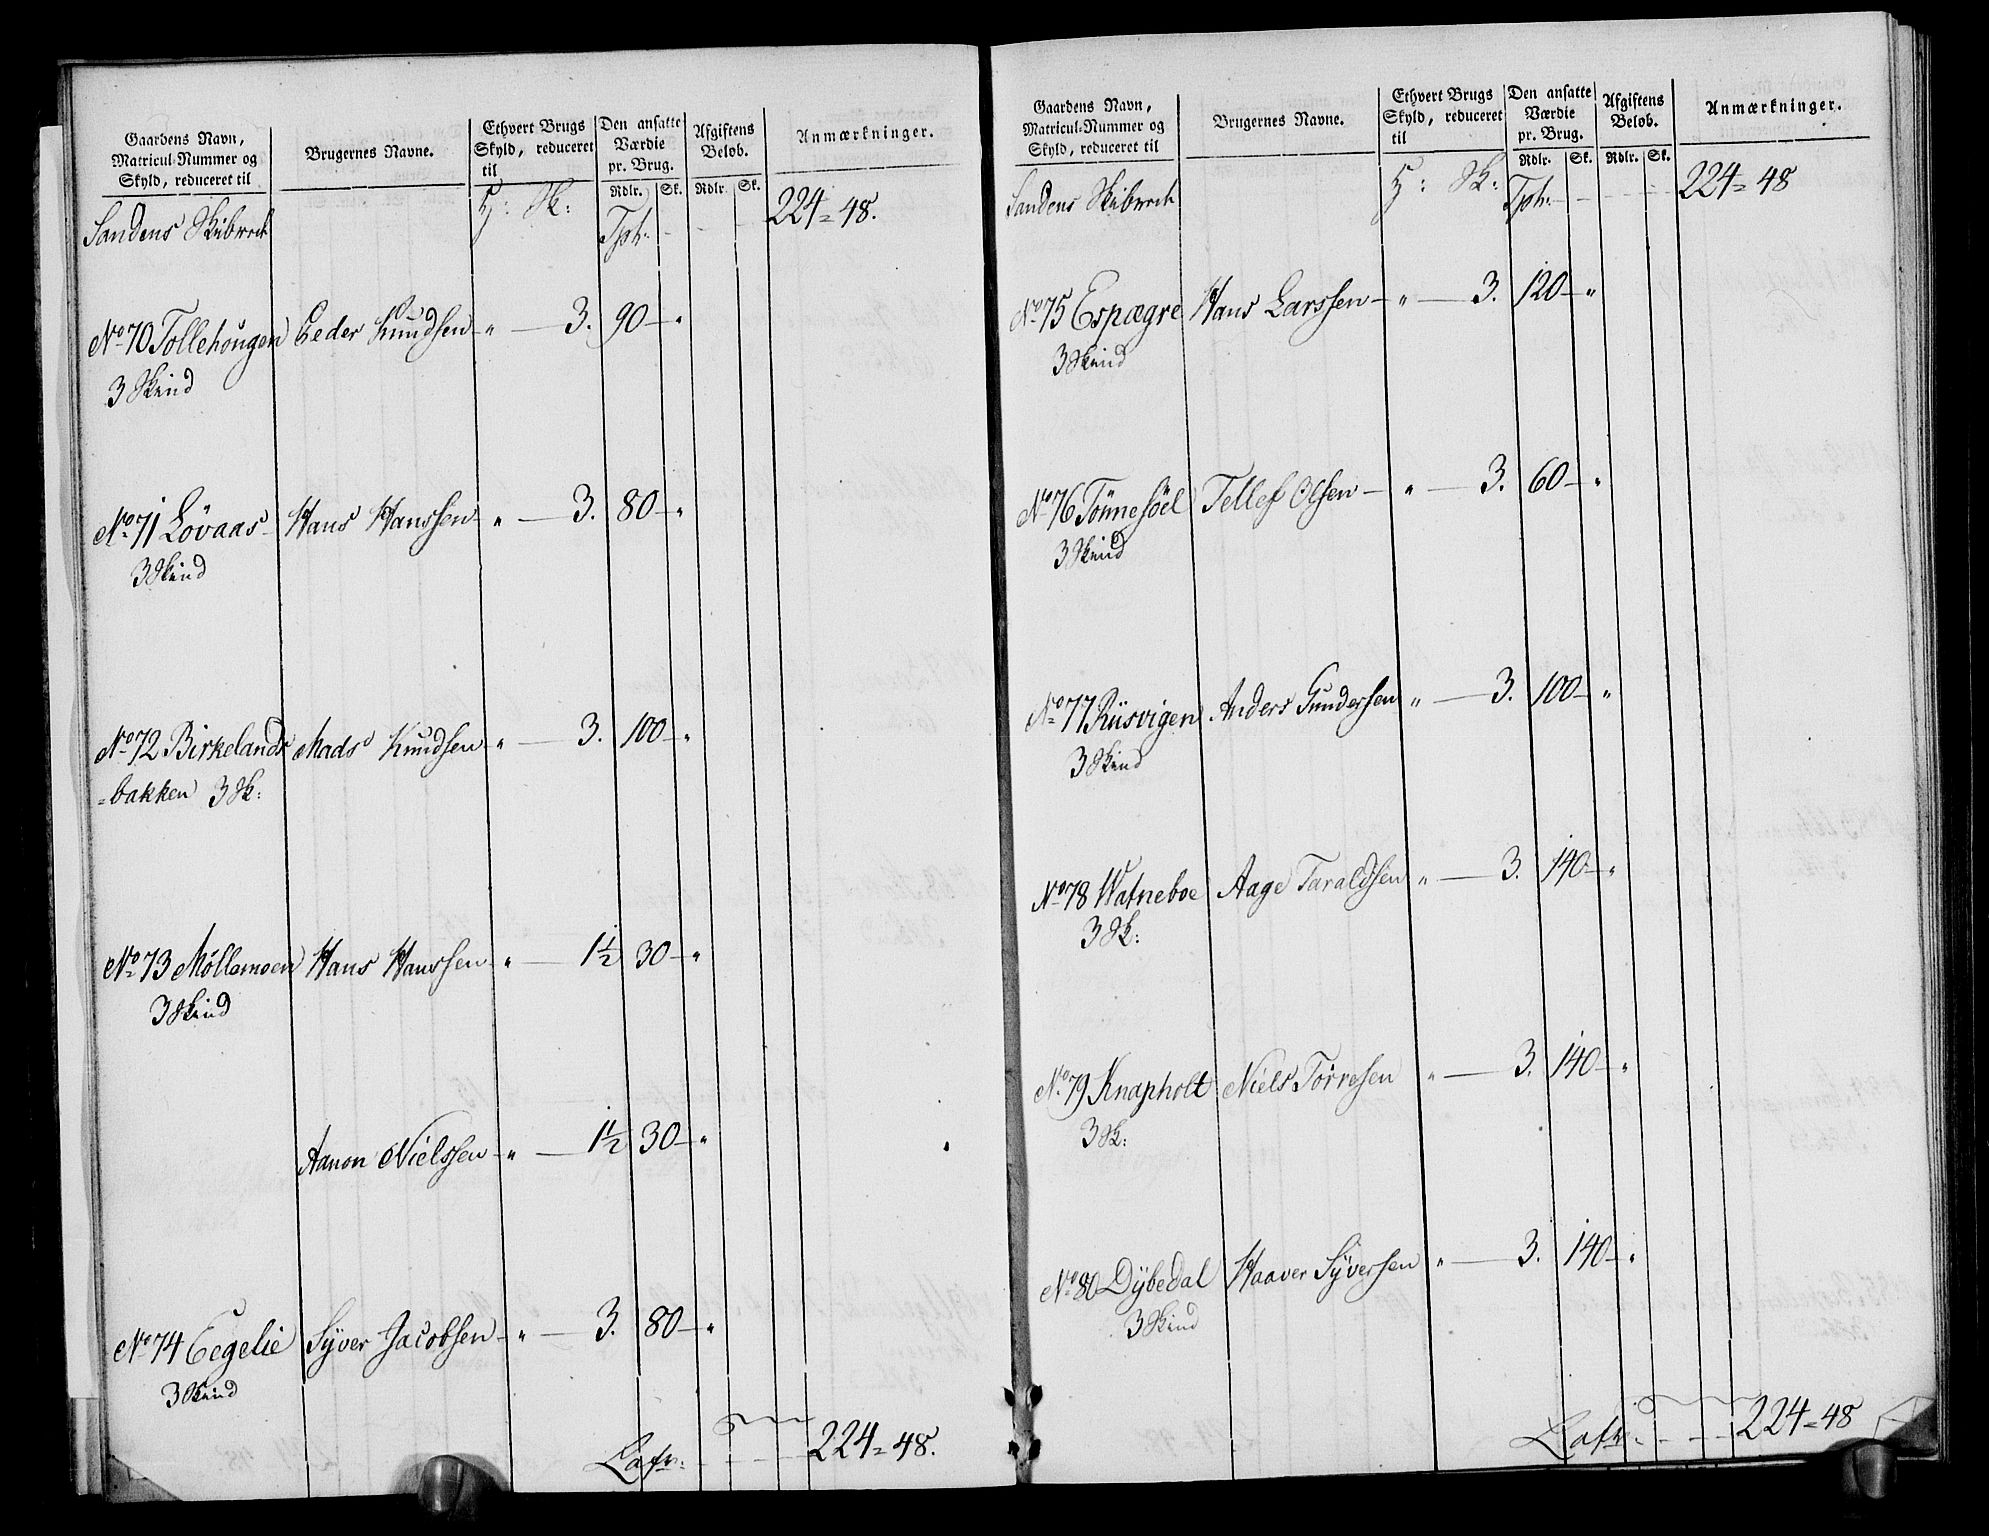 Gaardens Navn, Matricul-Nummer og Skyld, reduceret til
Brugernes Navne.
Ethvert Brugs Skyld, reduceret til
Den ansatte Værdie pr. Brug.
Rdlr. Sk.
Afgiftens Beløb.
Rdlr. Sk.
Anmærkninger.
Sandens Skibrede H: Sk: Tpt: 224 = 48.
No 70 Tollehougen Peder Knudsen - " - 3. 90 - "
3 Skind
No 71 Lövaas Hans Hanssen - " - 3. 80 - "
3 Skind
No 72 Birkelands Mads Knudsen - " - 3. 100 - "
=bakken 3 Sk:
No 73 Möllemoen Hans Hanssen - " - 1½ 30 - "
3 Skind
Aanon Nielssen - " - 1½ 30 - "
No 74 Eegelie Syver Jacobsen - " - 3. 80 - "
3 Skind
Latr: 224 = 48.
Gaardens Navn, Matricul-Nummer og Skyld, reduceret til
Brugernes Navne.
Ethvert Brugs Skyld, reduceret til
Den ansatte Værdie pr. Brug.
Rdlr. Sk.
Afgiftens Beløb.
Rdlr. Sk.
Anmærkninger.
Sandens Skibrede H: Sk: Tpt: 224 = 48
No 75 Espægre Hans Larssen - " - 3. 120 - "
3 Skind
No 76 Tönnesöel Tellef Olsen - " - 3. 60 - "
3 Skind
No 77 Riisvigen Anders Gundersen " - 3. 100 - "
3 Skind
No 78 Watneboe Aage Taraldsen " - 3. 140 - "
3 Sk:
No 79 Knapholt Niels Torresen " - 3. 140 - "
3 Sk:
No 80 Dybedal Haaver Syversen " - 3. 140 - "
3 Skind
Latr: 224 = 48